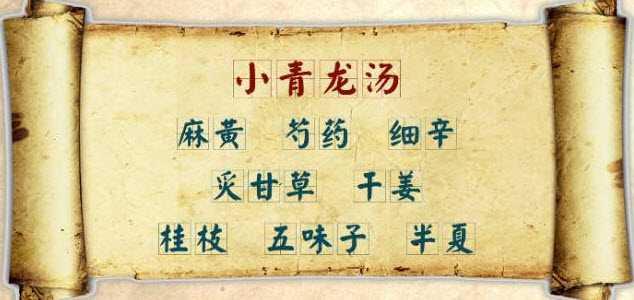 小青龙汤
麻黃 芍药 细辛
炙甘草 干姜
桂枝 五味子 半夏